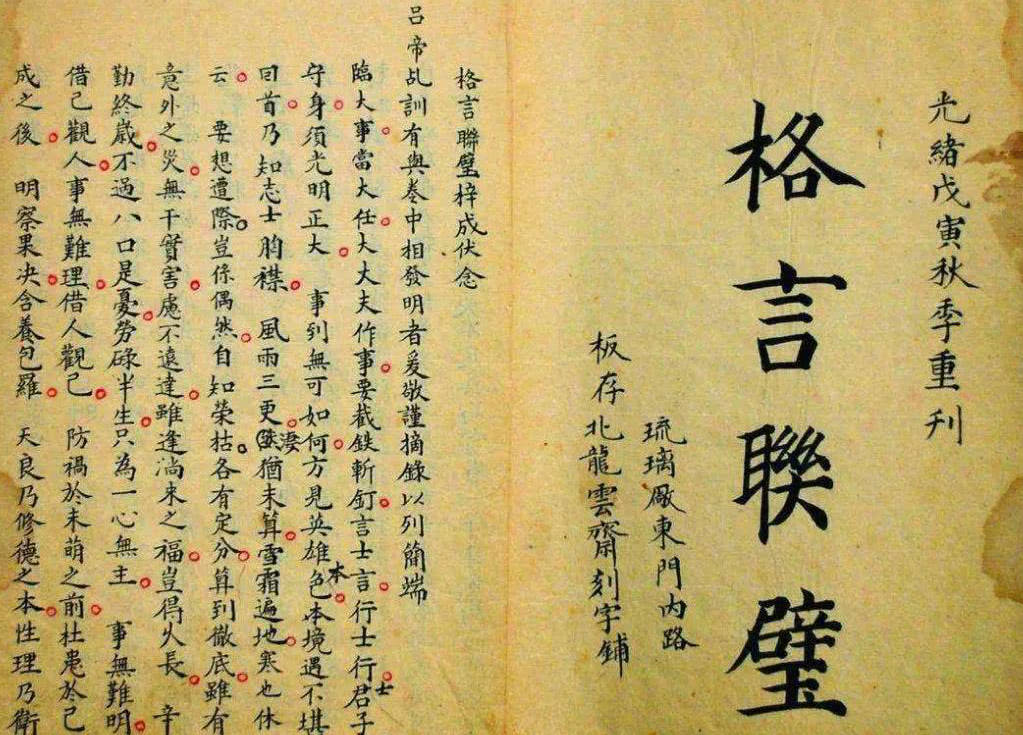 光緒戊寅秋季重刊
格言聯璧
琉璃厰東門内路
板存北龍雲齋刻字鋪
格言聯璧梓成伏念
呂帝乩訓有與巻中相發明者爰敬謹摘錄以列簡端
臨大事當大任大丈夫作事要截鉄斬釘言士言行士行士君子
守身須光明正大 事到無可如何方見英雄本色本境遇不堪
囘首乃知志士胸襟 風雨三更淒猶未算雪霜遍地寒也休
云 要想遭際豈係偶然自知榮枯各有定分算到徹底雖有
意外之災無干實害慮不遠達雖逢淌来之福豈得久長 辛
勤終歲不過八口是憂勞碌半生只為一心無主 事無難明
借己觀人事無難理借人觀己 防禍於未萌之前杜患於己
成之後 明察果决含養包羅 天良乃修德之本性理乃衛